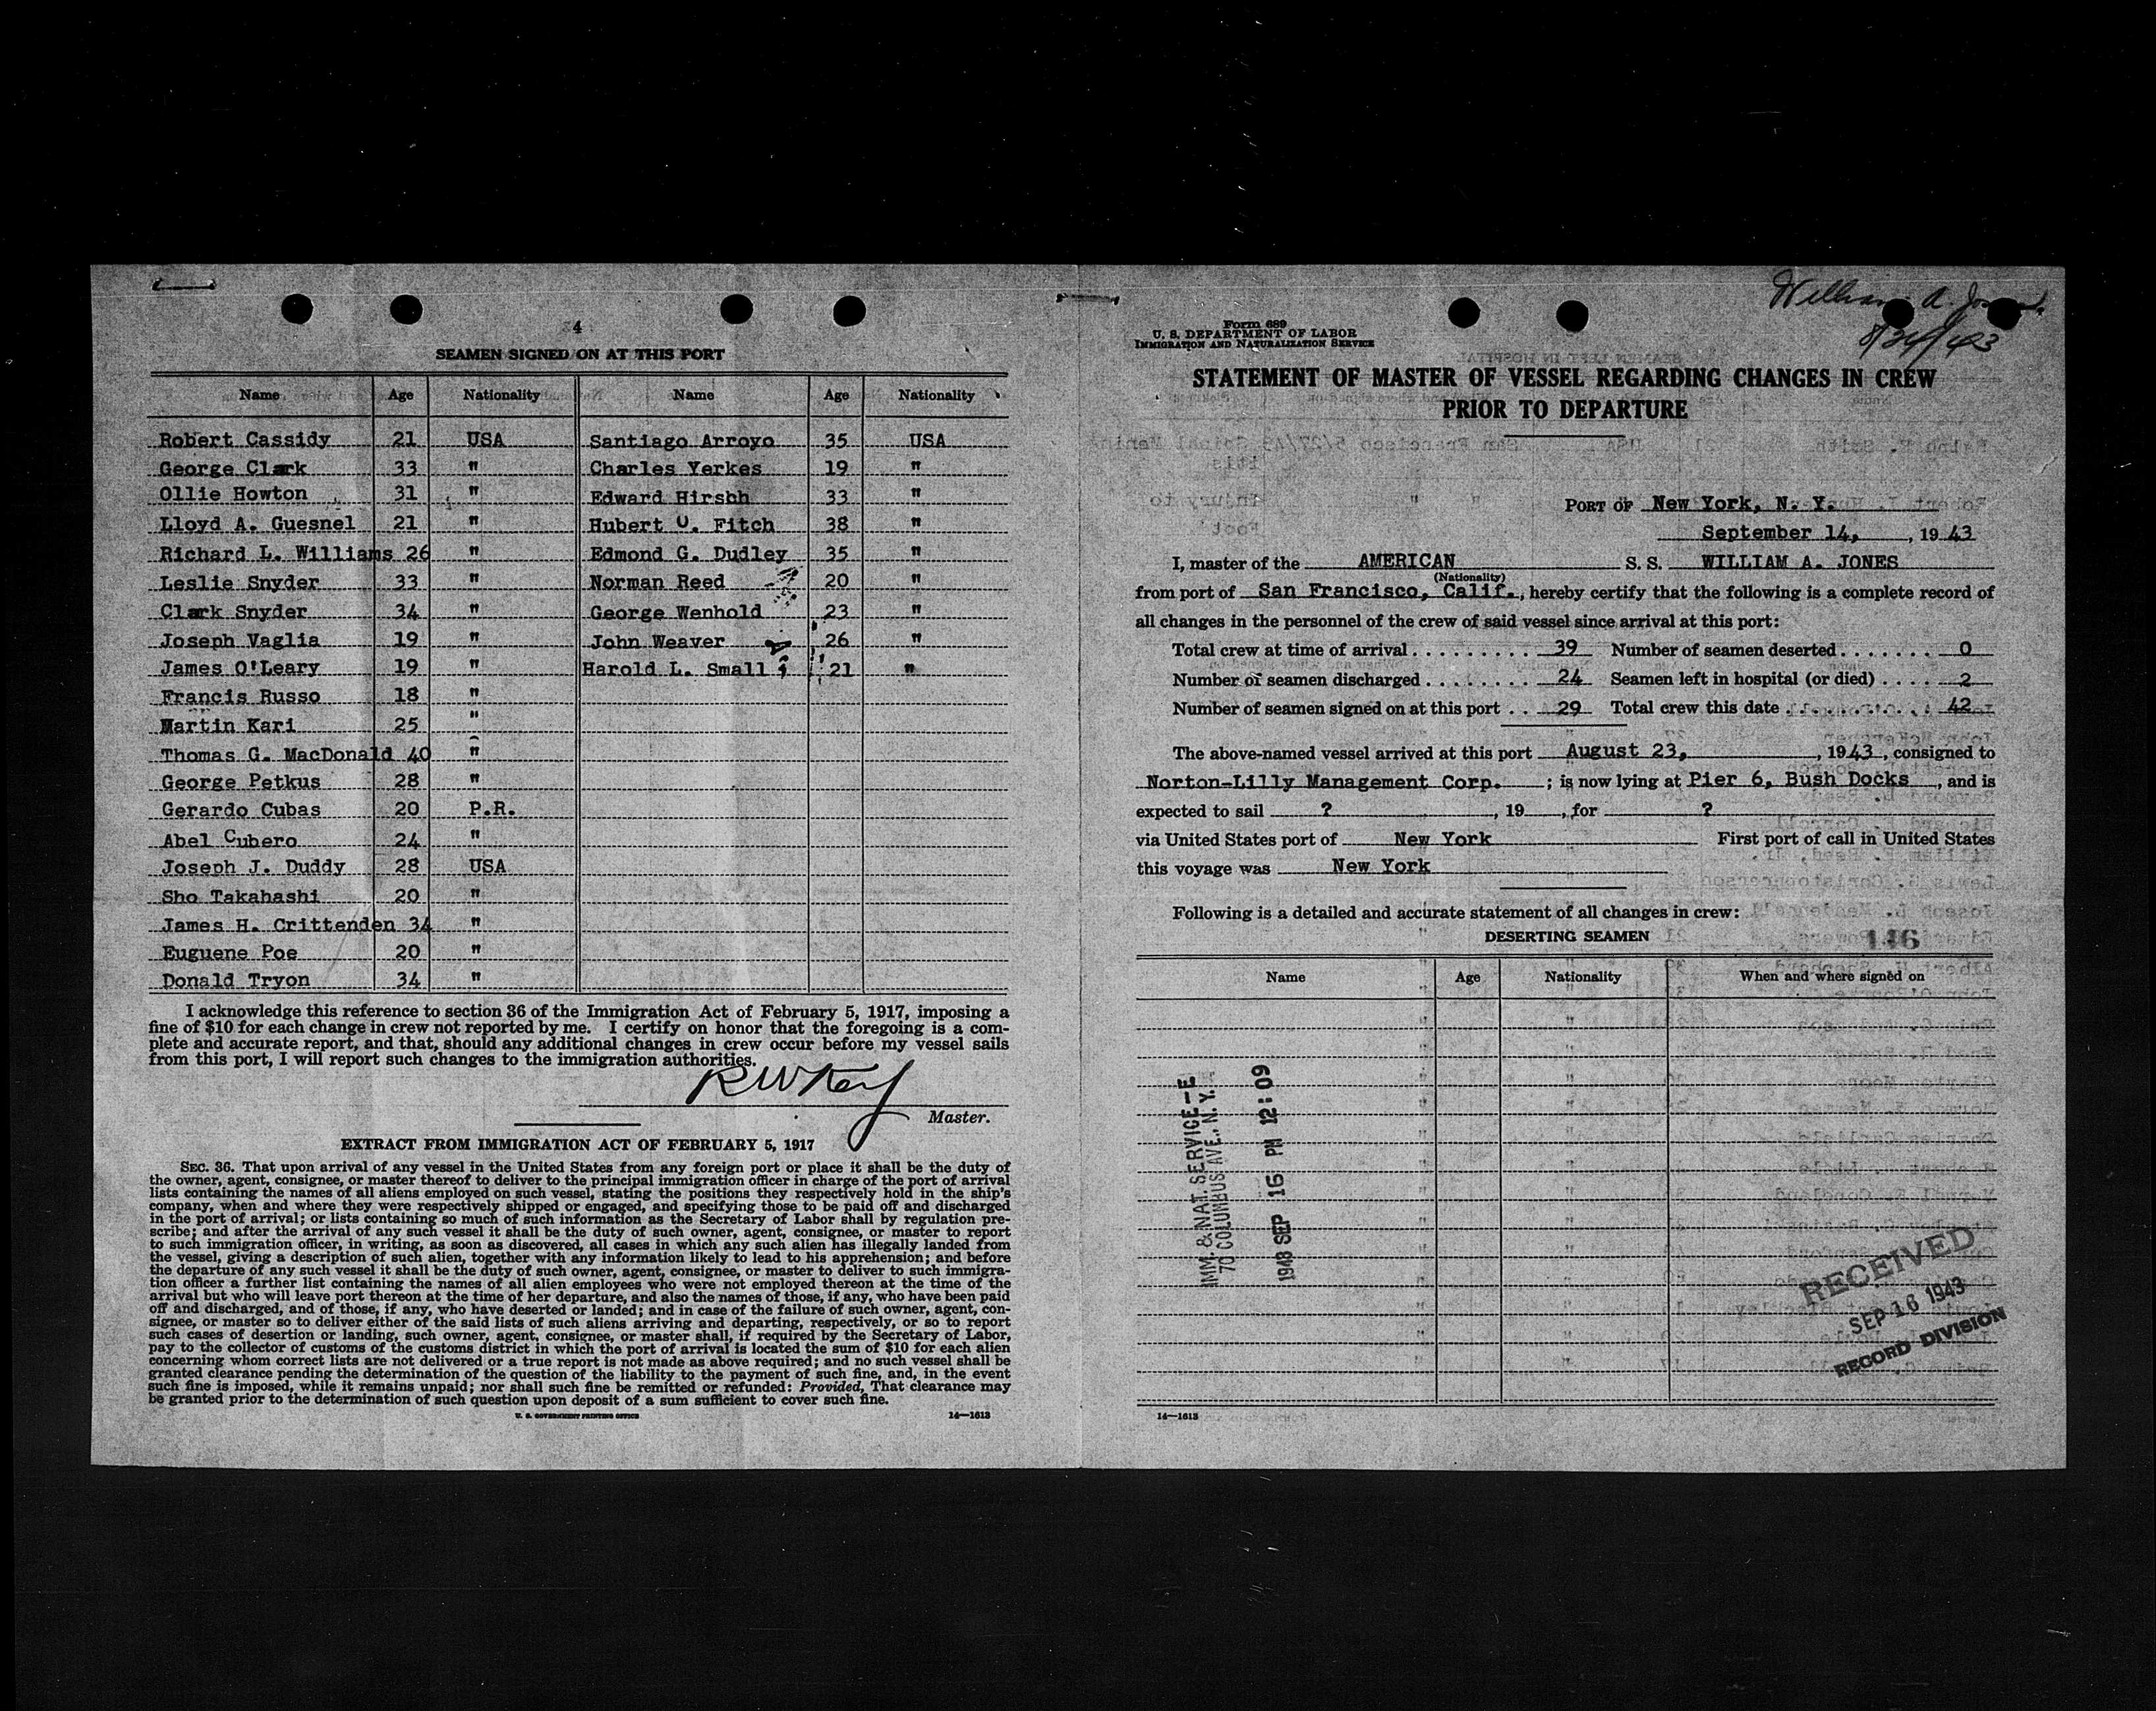 4
SEAMEN SIGNED ON AT THIS PORT
Name Age Nationality Name Age Nationality
Robert Cassidy 21 USA Santiago Arroyo 35 USA
George Clark 33 " Charles Yerkes 19 "
Ollie Howton 31 " Edward Hirshh 33 "
Lloyd A. Guesnel 21 " Hubert U. Fitch 38 "
Richard L. Williams 26 " Edmond G. Dudley 35 "
Leslie Snyder 33 " Norman Reed 20 "
Clark Snyder 34 " George Wenhold 23 "
Joseph Vaglia 19 " John Weaver 26 "
James O'Leary 19 " Harold L. Small 21 "
Francis Russo 18 "
Martin Kari 25 "
Thomas G. MacDonald 40 "
George Petkus 28 "
Gerardo Cubas 20 P.R.
Abel Cubero 24 "
Joseph J. Duddy 28 USA
Sho Takahashi 20 "
James H. Crittenden 34 "
Euguene Poe 20 "
Donald Tryon 34 "
I acknowledge this reference to section 36 of the Immigration Act of February 5, 1917, imposing a
fine of $10 for each change in crew not reported by me. I certify on honor that the foregoing is a com-
plete and accurate report, and that, should any additional changes in crew occur before my vessel sails
from this port, I will report such changes to the immigration authorities.
Master.
EXTRACT FROM IMMIGRATION ACT OF FEBRUARY 5, 1917
SEC. 36. That upon arrival of any vessel in the United States from any foreign port or place it shall be the duty of
the owner, agent, consignee, or master thereof to deliver to the principal immigration officer in charge of the port of arrival
lists containing the names of all aliens employed on such vessel, stating the positions they respectively hold in the ship's
company, when and where they were respectively shipped or engaged, and specifying those to be paid off and discharged
in the port of arrival; or lists containing so much of such information as the Secretary of Labor shall by regulation pre-
scribe; and after the arrival of any such vessel it shall be the duty of such owner, agent, consignee, or master to report
to such immigration officer, in writing, as soon as discovered, all cases in which any such alien has illegally landed from
the vessel, giving a description of such alien, together with any information likely to lead to his apprehension; and before
the departure of any such vessel it shall be the duty of such owner, agent, consignee, or master to deliver to such immigra-
tion officer a further list containing the names of all alien employees who were not employed thereon at the time of the
arrival but who will leave port thereon at the time of her departure, and also the names of those, if any, who have been paid
off and discharged, and of those, if any, who have deserted or landed; and in case of the failure of such owner, agent, con-
signee, or master so to deliver either of the said lists of such aliens arriving and departing, respectively, or so to report
such cases of desertion or landing, such owner, agent, consignee, or master shall, if required by the Secretary of Labor,
pay to the collector of customs of the customs district in which the port of arrival is located the sum of $10 for each alien
concerning whom correct lists are not delivered or a true report is not made as above required; and no such vessel shall be
granted clearance pending the determination of the question of the liability to the payment of such fine, and, in the event
such fine is imposed, while it remains unpaid; nor shall such fine be remitted or refunded: Provided, That clearance may
be granted prior to the determination of such question upon deposit of a sum sufficient to cover such fine.
U. S. GOVERNMENT PRINTING OFFICE 14—1613
William A. Jones
Form 689
U. S. DEPARTMENT OF LABOR
IMMIGRATION AND NATURALIZATION SERVICE
STATEMENT OF MASTER OF VESSEL REGARDING CHANGES IN CREW
PRIOR TO DEPARTURE
PORT OF New York, N. Y.
September 14, , 19 43
I, master of the AMERICAN S. S. WILLIAM A. JONES
(Nationality)
from port of San Francisco, Calif., hereby certify that the following is a complete record of
all changes in the personnel of the crew of said vessel since arrival at this port:
Total crew at time of arrival . . . . . . . . . 39 Number of seamen deserted . . . . . . . 0
Number of seamen discharged . . . . . . . . 24 Seamen left in hospital (or died) . . . . 2
Number of seamen signed on at this port . . 29 Total crew this date . . . . . . . . . . 42
The above-named vessel arrived at this port August 23, , 1943, consigned to
Norton-Lilly Management Corp. ; is now lying at Pier 6, Bush Docks , and is
expected to sail ? , 19 , for ?
via United States port of New York First port of call in United States
this voyage was New York
Following is a detailed and accurate statement of all changes in crew:
DESERTING SEAMEN 146
Name Age Nationality When and where signed on
IMM. & NAT. SERVICE-E
70 COLUMBUS AVE., N. Y.
1943 SEP 16 PM 12:09
RECEIVED
SEP 16 1943
RECORD DIVISION
14—1613